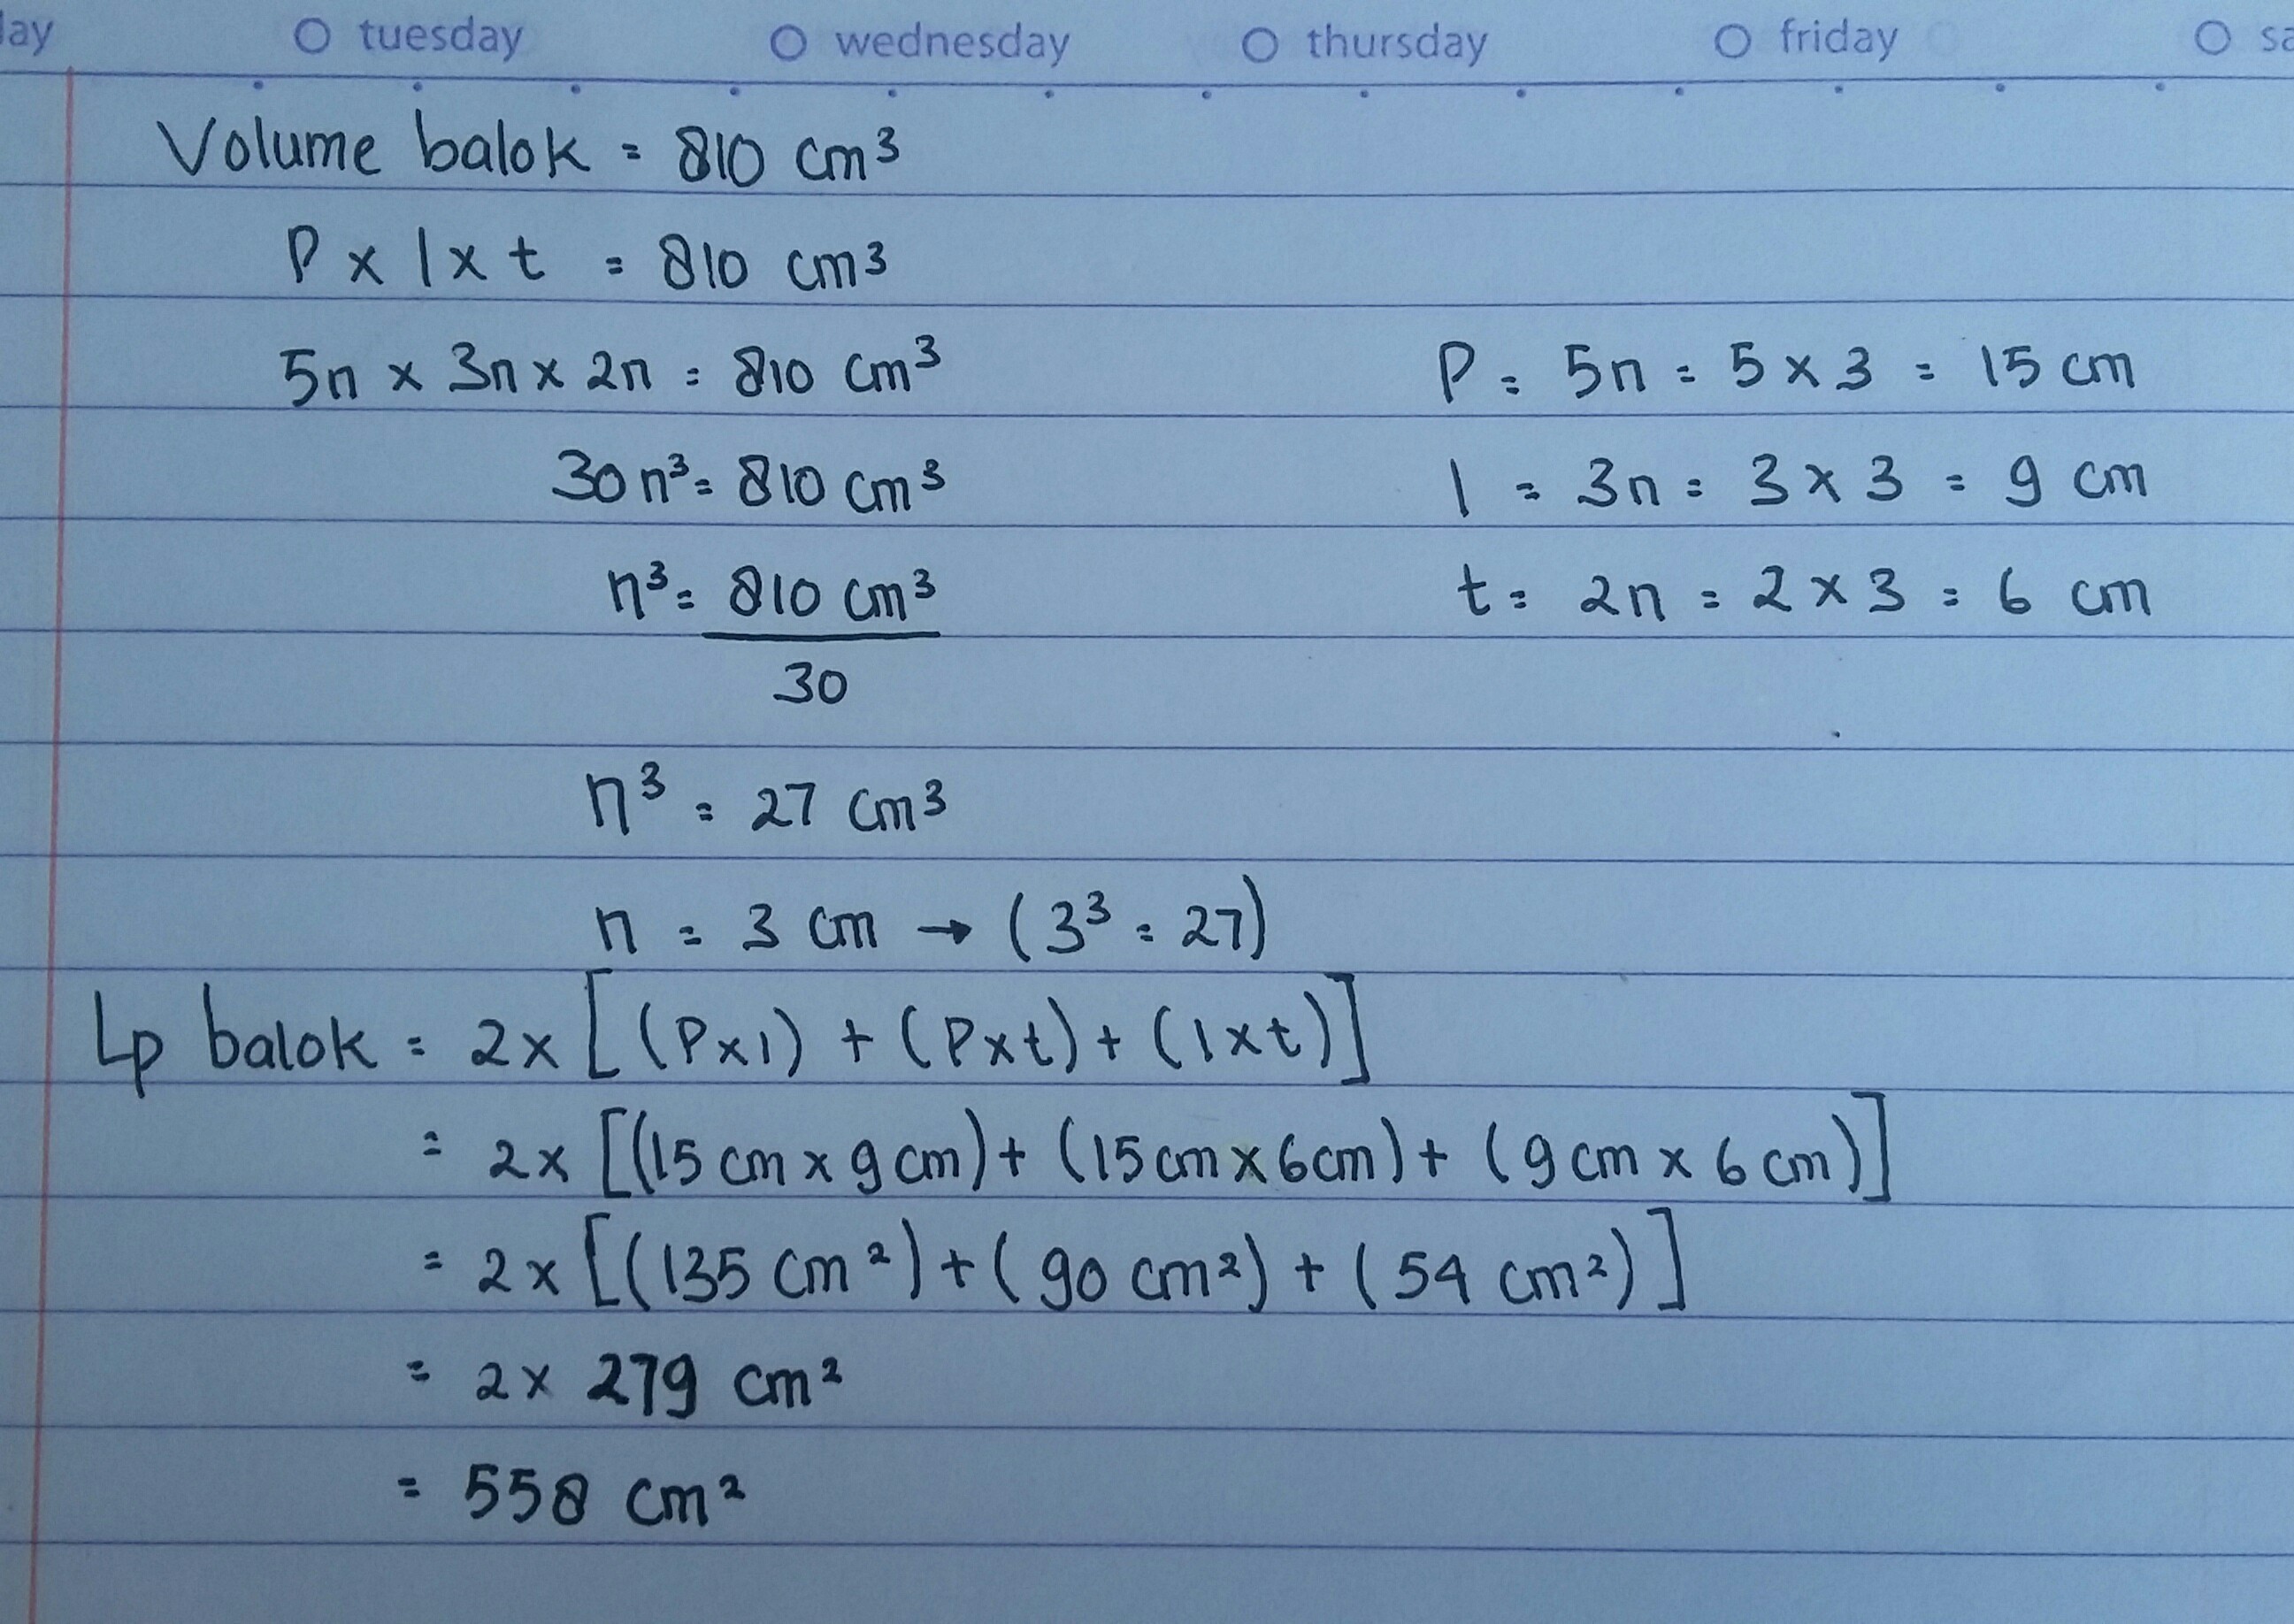 tuesday wednesday thursday friday
Volume balok = 810 cm³
P x l x t = 810 cm³
5n x 3n x 2n = 810 cm³
30n³ = 810 cm³
n³ = 810 cm³
30
n³ = 27 cm³
n = 3 cm → (3³ = 27)
P = 5n = 5 x 3 = 15 cm
l = 3n = 3 x 3 = 9 cm
t = 2n = 2 x 3 = 6 cm
Lp balok = 2 x [(P x l) + (P x t) + (l x t)]
= 2 x [(15 cm x 9 cm) + (15 cm x 6 cm) + (9 cm x 6 cm)]
= 2 x [(135 cm²) + (90 cm²) + (54 cm²)]
= 2 x 279 cm²
= 558 cm²